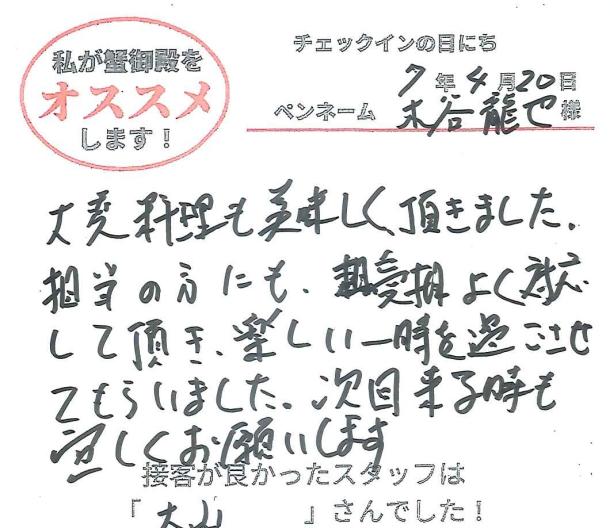 私が蟹御殿を
オススメ
します！
チェックインの日にち
7年4月20日
ペンネーム 木谷龍也様
大変料理も美味しく頂きました。
担当の方にも、愛想よく対応
して頂き、楽しい一時を過ごさせ
てもらいました。次回来る時も
宜しくお願いします
接客が良かったスタッフは
「大山」さんでした！